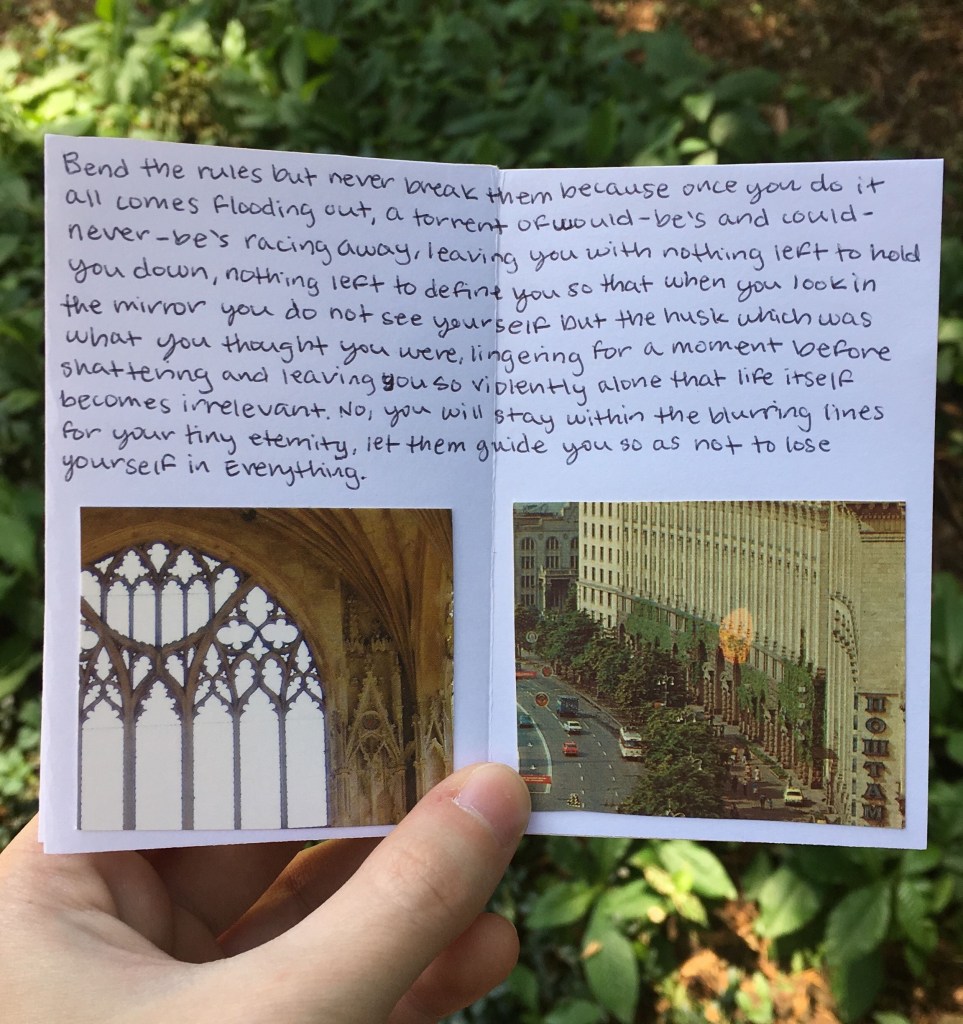 Bend the rules but never break them because once you do it
all comes flooding out, a torrent of would-be's and could-
never-be's racing away, leaving you with nothing left to hold
you down, nothing left to define you so that when you look in
the mirror you do not see yourself but the husk which was
what you thought you were, lingering for a moment before
shattering and leaving you so violently alone that life itself
becomes irrelevant. No, you will stay within the blurring lines
for your tiny eternity, let them guide you so as not to lose
yourself in Everything.
ПОШТАМ